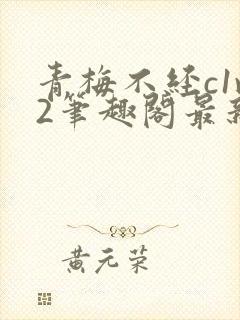 青梅不经c1v
2筆趣阁最新
黄元荣